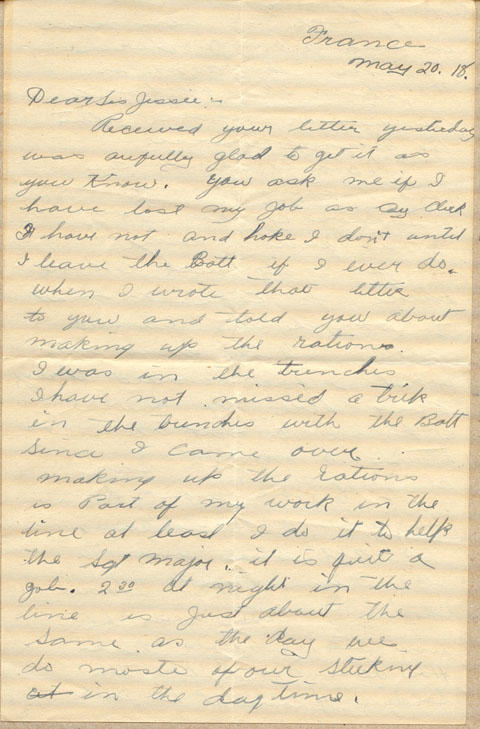 France
May 20. 18.
Dear Sis Jessie:-
Received your letter yesterday
was awfully glad to get it as
you Know. You ask me if I
have lost my job as Cpy Clerk
I have not and hoke I don't until
I leave the Batt if I ever do.
when I wrote that letter
to you and told you about
making up the rations.
I was in the trenches
I have not missed a trik
in the trenches with the Batt
since I came over.
making up the rations
is Part of my work in the
line at least I do it to help
the Sgt Major. it is quit a
job. 2 30 at night in the
line is Just about the
same as the Day we
do moste of our sleeking
at in the day time.